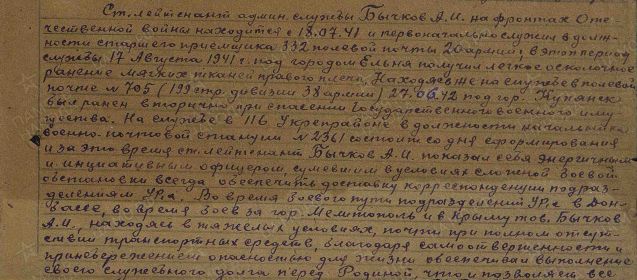 Ст. лейтенант админ. службы Бычков А.И. на фронтах Оте-
чественной войны находится с 18.07.41 и первоначально служил в долж-
ности старшего приемщика 332 полевой почты 20 армии; в этот период
службы 17 Августа 1941 г. под городом Ельня получил легкое осколочное
ранение мягких тканей правого плеча. Находясь же на службе в полевой
почте № 705 (199 стр. дивизии 38 армии) 27.06.42 под гор. Купянск
был ранен вторично при спасении Государственного военного иму-
щества. На службе в 116 Укрепрайоне в должности начальника
военно-почтовой станции № 2361 состоит со дня сформирования
и за это время ст. лейтенант Бычков А.И. показал себя энергичным
и инициативным офицером, сумевшим в условиях сложной боевой
обстановки всегда обеспечить доставку корреспонденции подраз-
делениям УРа. Во время боевого пути подразделений УРа в Дон-
басе, во время боев за гор. Мелитополь и в Крыму тов. Бычков
А.И., находясь в тяжелых условиях, почти при полном отсут-
ствии транспортных средств, благодаря самоотверженности и
пренебрежением опасностью для жизни обеспечивал выполнение
своего служебного долга перед Родиной, что и позволяло все